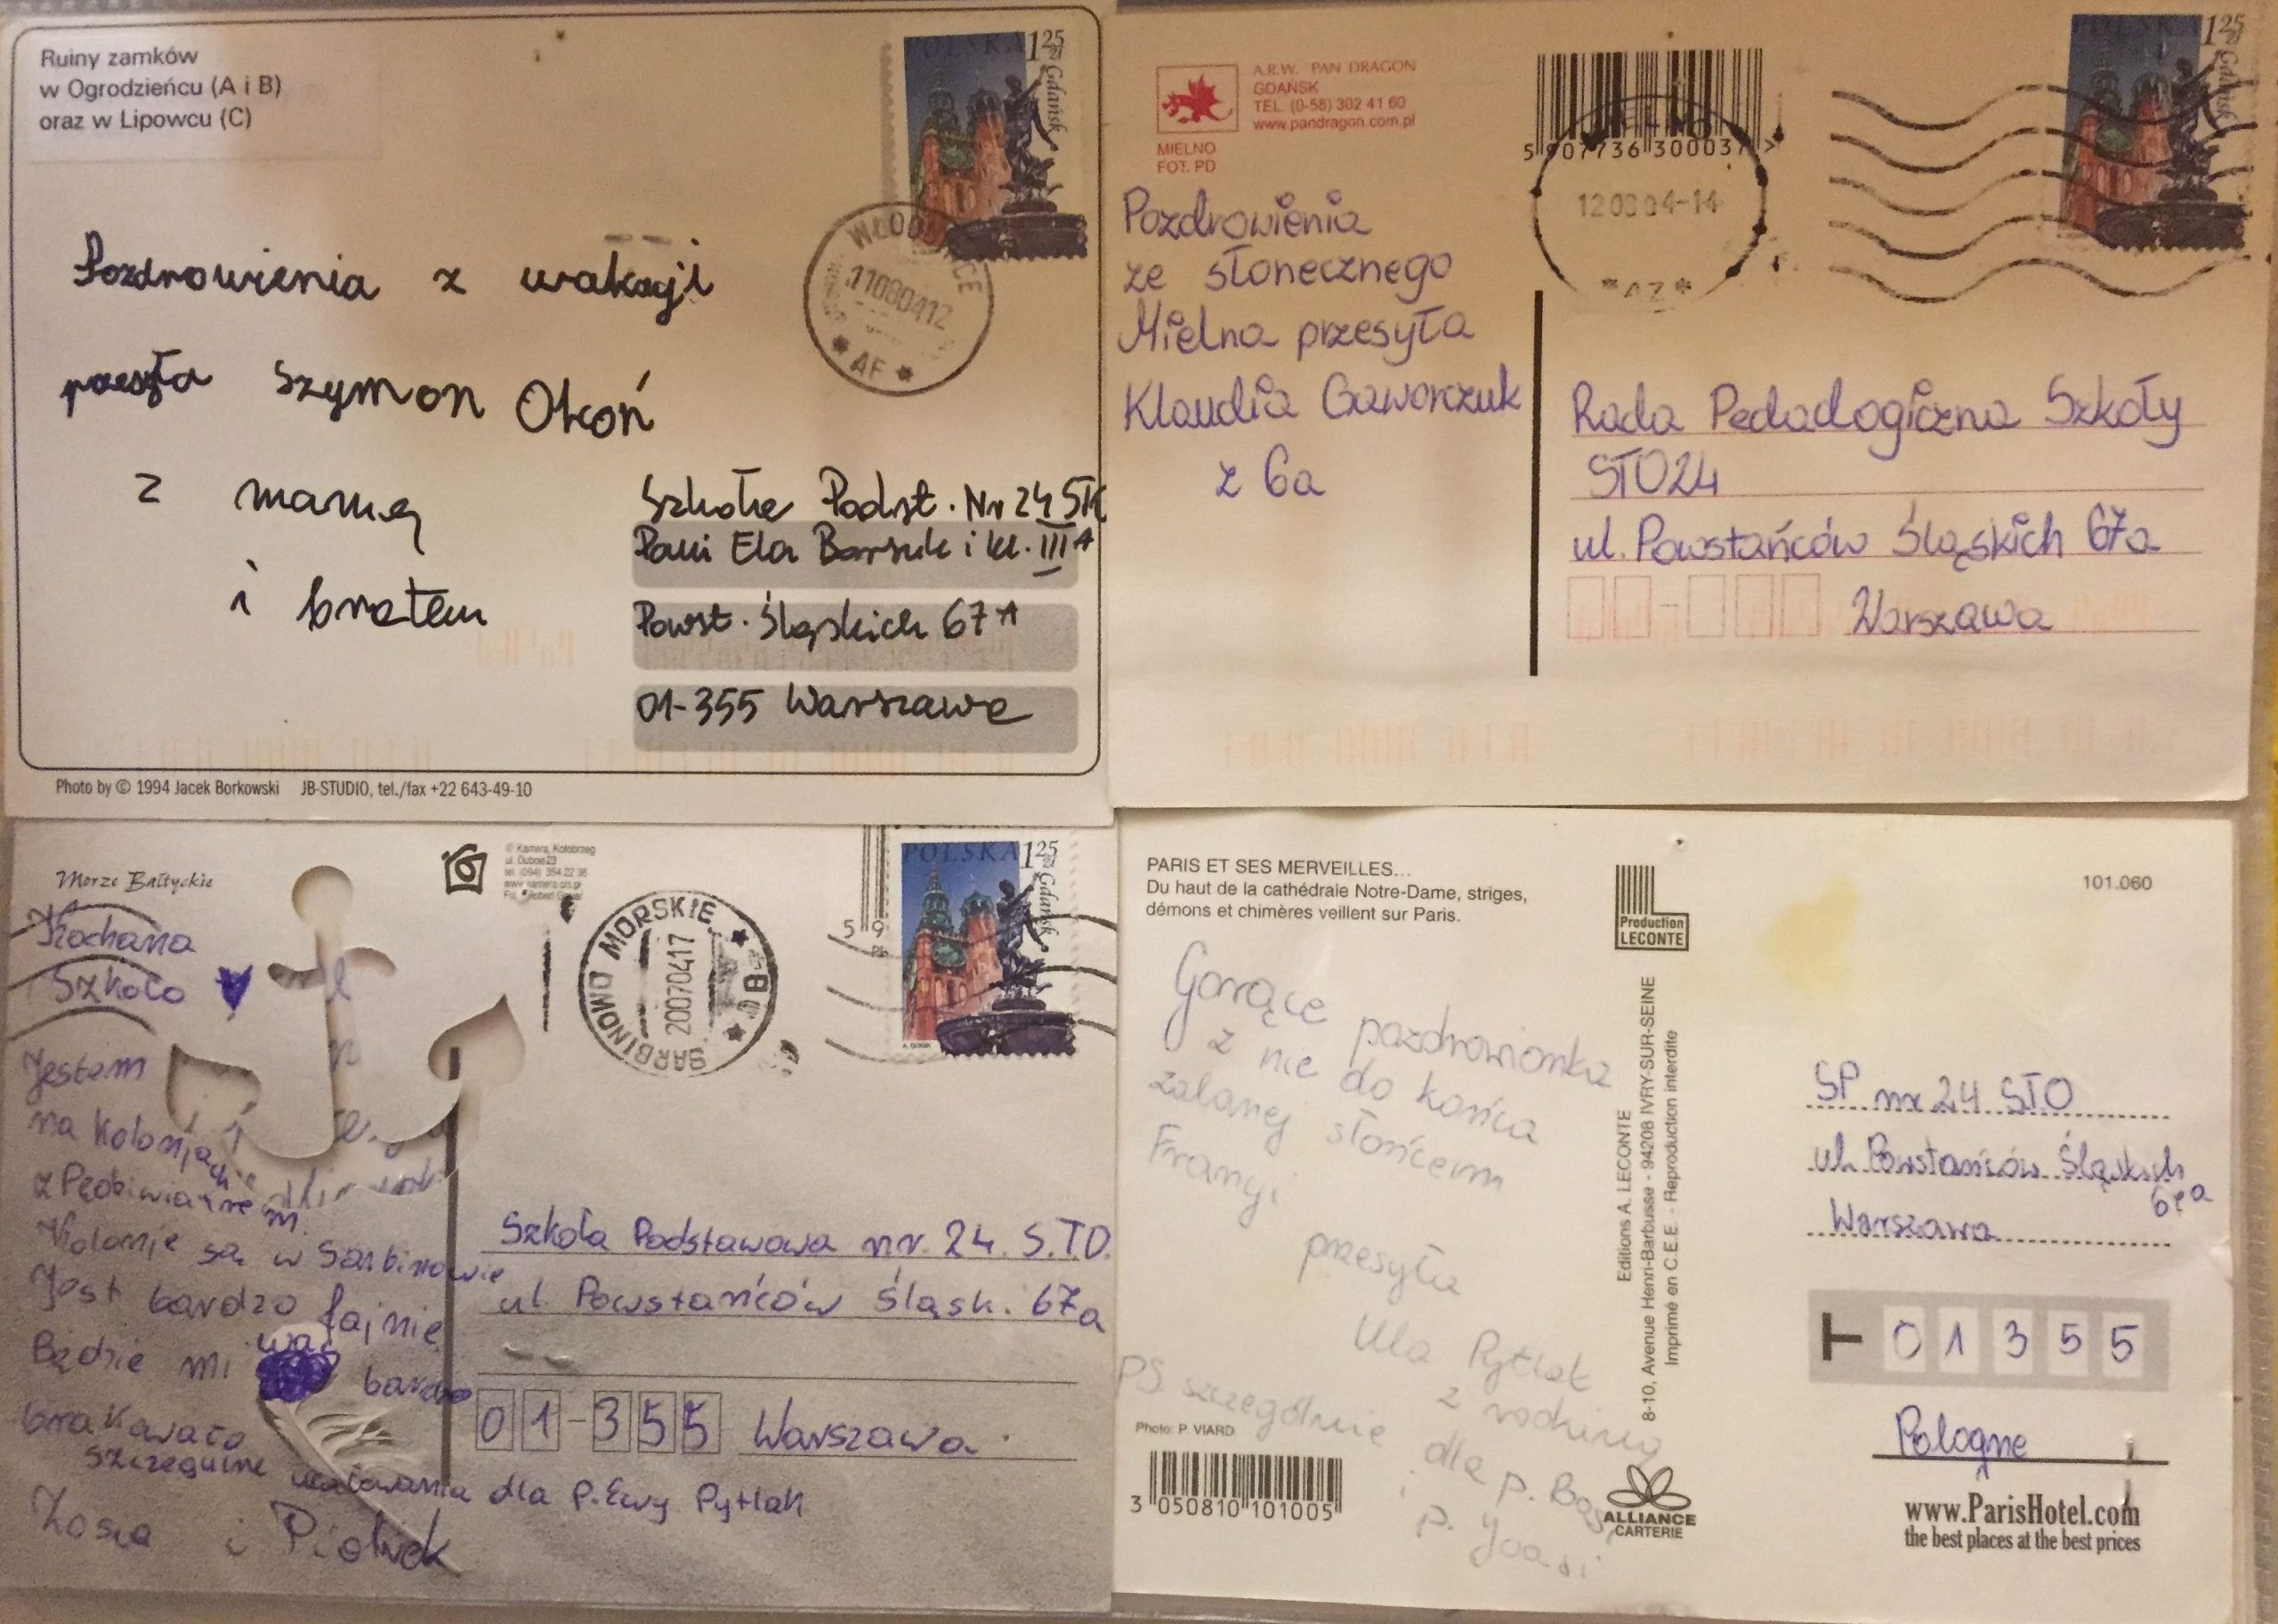 Ruiny zamków
w Ogrodzieńcu (A i B)
oraz w Lipowcu (C)
POLSKA 125 zł
Gdańsk
110804 12
* AF *
Pozdrowienia z wakacji
przesyła Szymon Okoń
z mamą
i bratem
Szkoła Podst. Nr 24 STO
Pani Ela Barszuk i kl. III A
Powst. Śląskich 67 A
01-355 Warszawa
Photo by © 1994 Jacek Borkowski JB-STUDIO, tel./fax +22 643-49-10
A.R.W. PAN DRAGON
GDAŃSK
TEL. (0-58) 302 41 60
www.pandragon.com.pl
MIELNO
FOT. PD
5 907736 300037 >
MIELNO
12 08 04-14
* AZ *
POLSKA 125 zł
Gdańsk
Pozdrowienia
ze słonecznego
Mielna przesyła
Klaudia Gaworczuk
z 6a
Rada Pedadogiczna Szkoły
STO24
ul. Powstańców Śląskich 67a
Warszawa
Morze Bałtyckie
© Kamera, Kołobrzeg
ul. Dubois 23
tel. (094) 354 22 36
SARBINOWO MORSKIE
200704 17
* B *
5 9
POLSKA 125 zł
Gdańsk
Kochana
Szkoło
Jestem
na kolonjach
Kolonje są w Sarbinowie
Jest bardzo fajnie
Będzie mi was bardzo
brakowało
szczegulne ucałowania dla p. Ewy Pytlak
Zosia i Piotrek
Szkoła Podstawowa nr. 24. S.T.O.
ul. Powstańców Śląsk. 67a
01-355 Warszawa
PARIS ET SES MERVEILLES...
Du haut de la cathédrale Notre-Dame, striges,
démons et chimères veillent sur Paris.
Production
LECONTE
101.060
Gorące pozdrowionka
z nie do końca
zalanej słońcem
Francji
przesyła
Ula Pytlak
z rodziną
PS. szczególnie dla p. Basi
i p. Joasi
Editions A. LECONTE
8-10, Avenue Henri-Barbusse - 94206 IVRY-SUR-SEINE
Imprimé en C.E.E. - Reproduction interdite
Photo: P. VIARD
3 050810 101005
ALLIANCE
CARTERIE
SP nr 24 STO
ul. Powstańców Śląskich
67a
Warszawa
T 0 1 3 5 5
Pologne
www.ParisHotel.com
the best places at the best prices